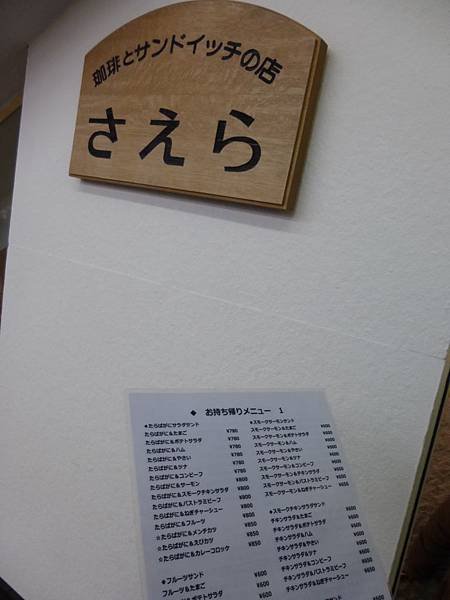 珈琲とサンドイッチの店
さえら
◆ お持ち帰りメニュー 1
●たらばがにサラダサンド
たらばがに&たまご ¥780
たらばがに&ポテトサラダ ¥780
たらばがに&ハム ¥780
たらばがに&やさい ¥780
たらばがに&ツナ ¥780
たらばがに&コンビーフ ¥780
たらばがに&サーモン ¥800
たらばがに&スモークチキンサラダ ¥800
たらばがに&パストラミビーフ ¥800
たらばがに&ねぎチャーシュー ¥800
たらばがに&フルーツ
☆たらばがに&メンチカツ ¥850
☆たらばがに&えびカツ ¥850
☆たらばがに&カレーコロッケ ¥850
◆フルーツサンド ¥600
フルーツ&たまご ¥600
ポテトサラダ ¥600
●スモークサーモンサンド
スモークサーモン&たまご
スモークサーモン&ポテトサラダ
スモークサーモン&ハム
スモークサーモン&やさい
スモークサーモン&ツナ
スモークサーモン&コンビーフ
スモークサーモン&チキンサラダ
スモークサーモン&パストラミビーフ
スモークサーモン&ねぎチャーシュー
◆スモークチキンサンド
チキンサラダ&たまご
チキンサラダ&ポテトサラダ
チキンサラダ&ハム
チキンサラダ&やさい
チキンサラダ&ツナ
チキンサラダ&コンビーフ
チキンサラダ&パストラミビーフ
チキンサラダ&ねぎチャーシュー